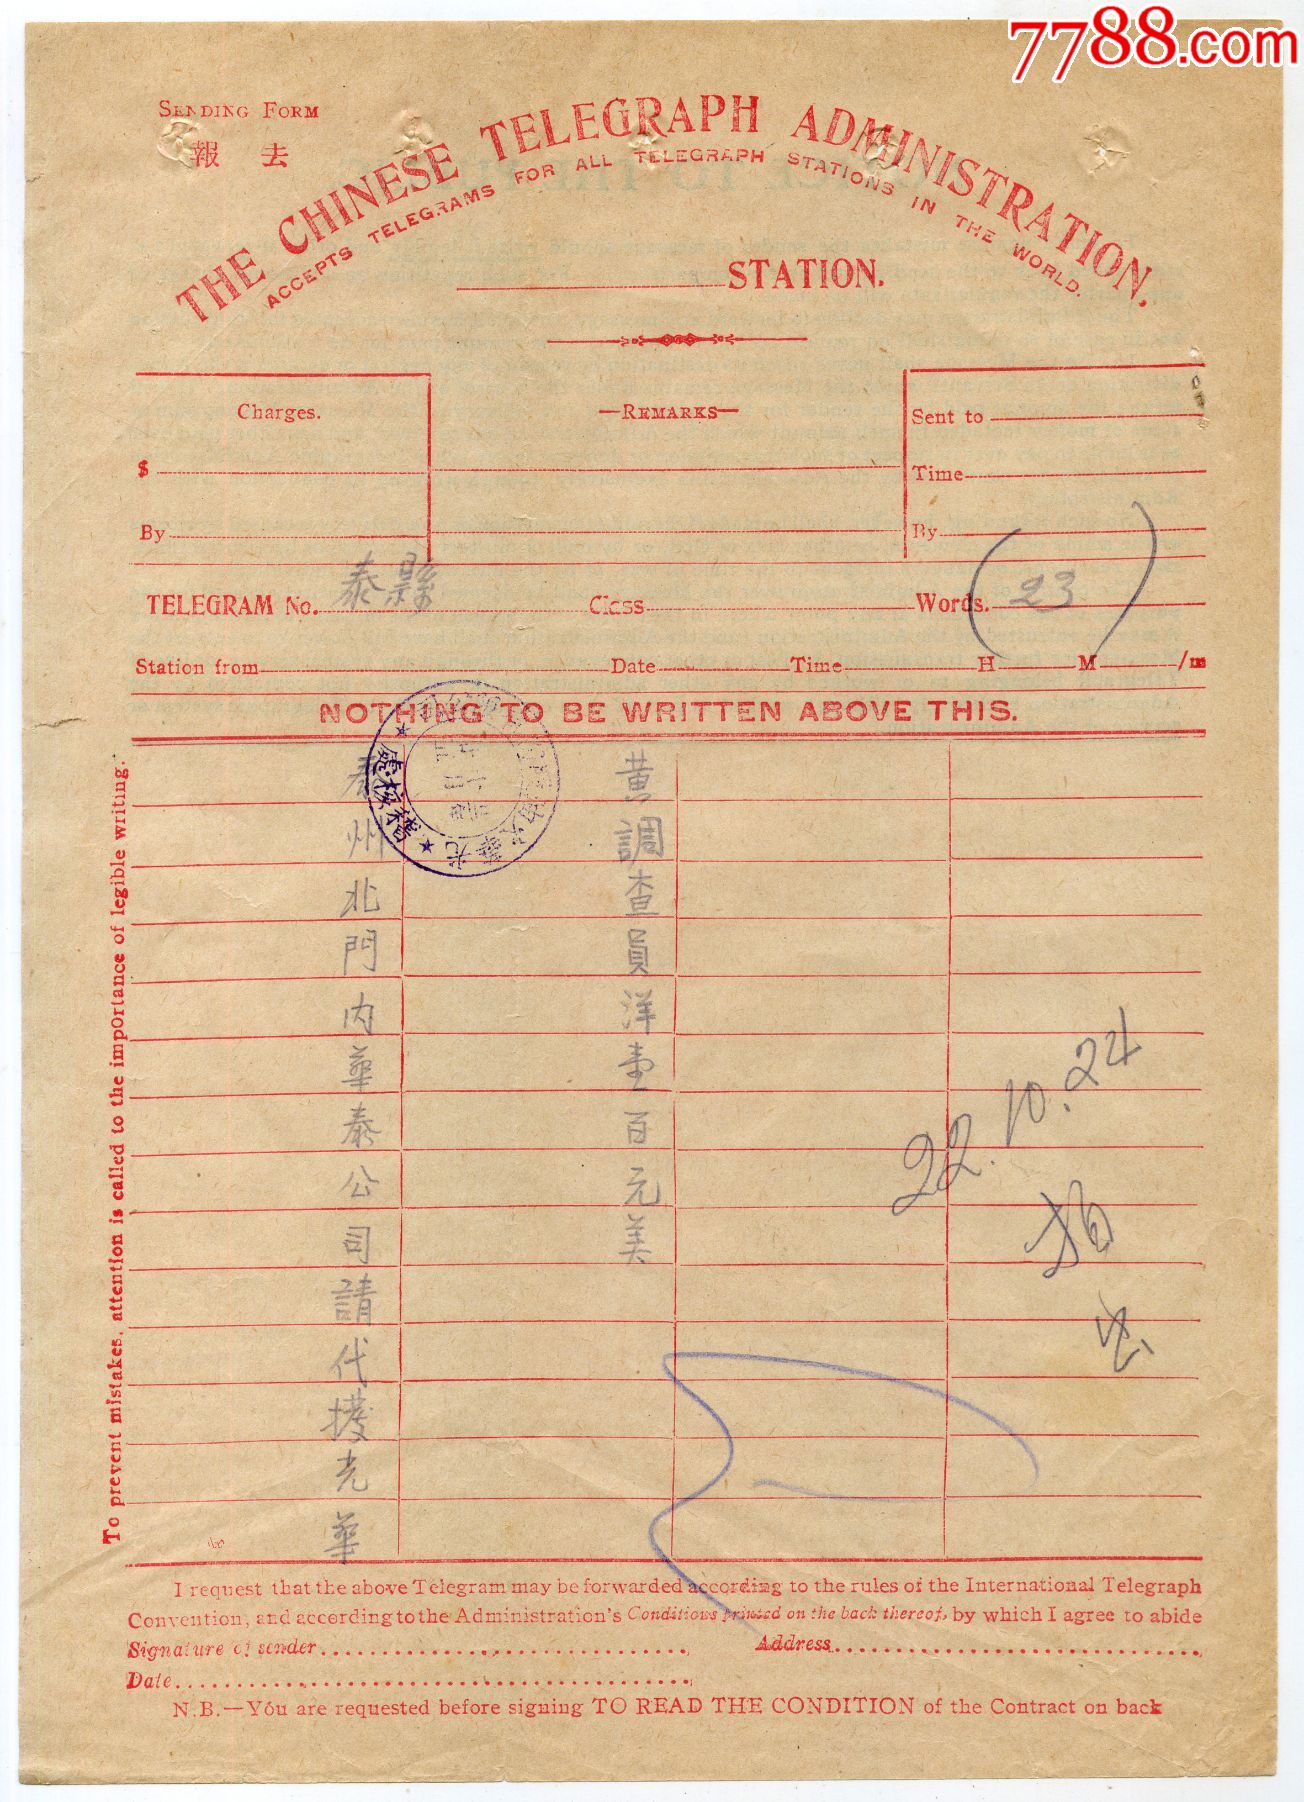 7788.com
SENDING FORM
報 去
THE CHINESE TELEGRAPH ADMINISTRATION.
ACCEPTS TELEGRAMS FOR ALL TELEGRAPH STATIONS IN THE WORLD.
STATION.
Charges.
$
By
—REMARKS—
Sent to
Time
By
TELEGRAM No. 泰縣 Class Words. (23)
Station from Date Time H M /m
NOTHING TO BE WRITTEN ABOVE THIS.
To prevent mistakes, attention is called to the importance of legible writing.
泰州北門内華泰公司請代撥光華
黃調查員洋壹百元美
22.10.24
I request that the above Telegram may be forwarded according to the rules of the International Telegraph
Convention, and according to the Administration's Conditions printed on the back thereof, by which I agree to abide
Signature of sender Address
Date
N.B.—You are requested before signing TO READ THE CONDITION of the Contract on back